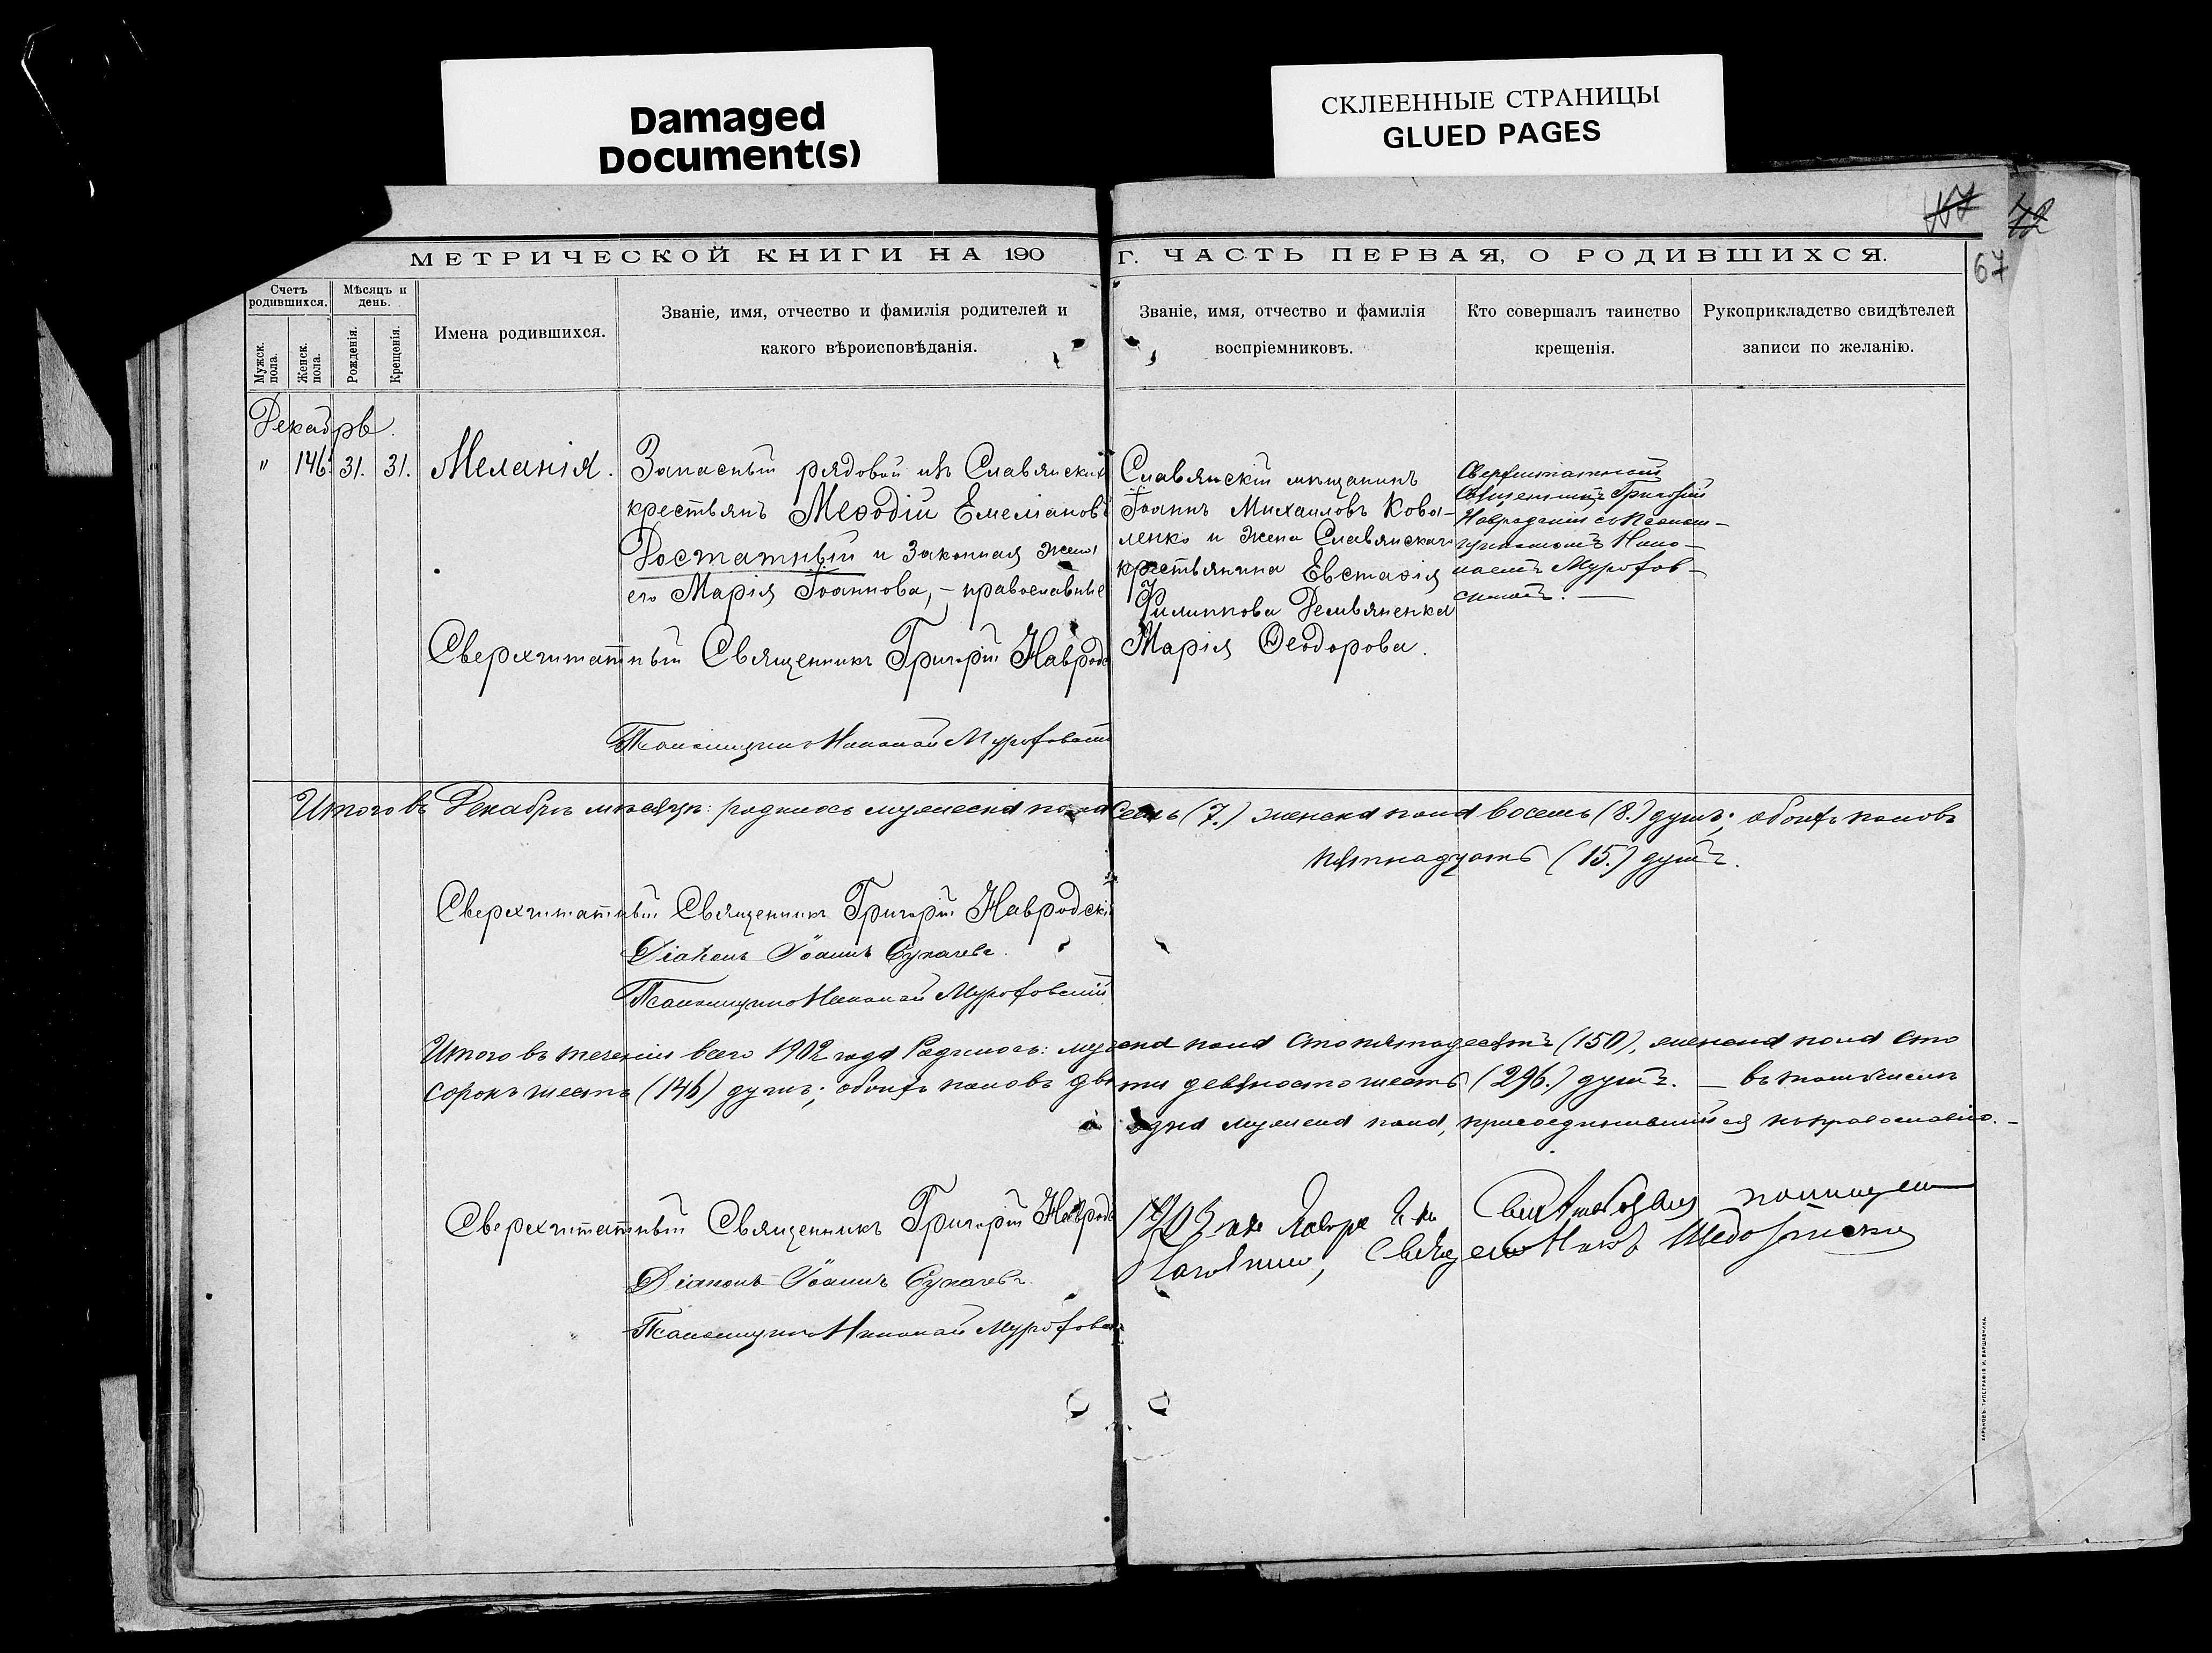 Damaged
Document(s)
СКЛЕЕННЫЕ СТРАНИЦЫ
GLUED PAGES
42
67
МЕТРИЧЕСКОЙ КНИГИ НА 190 Г. ЧАСТЬ ПЕРВАЯ, О РОДИВШИХСЯ.
Счетъ родившихся.
Мужск. пола.
Женск. пола.
Мѣсяцъ и день.
Рожденія.
Крещенія.
Имена родившихся.
Званіе, имя, отчество и фамилія родителей и
какого вѣроисповѣданія.
Званіе, имя, отчество и фамилія
воспріемниковъ.
Кто совершалъ таинство
крещенія.
Рукоприкладство свидѣтелей
записи по желанію.
Декабрь.
" 146. 31. 31. Меланія.
Запасный рядовой изъ Славянскихъ
крестьянъ Меѳодій Емеліановъ
Достатный и законная жена
его Марія Іоаннова, - православные
Славянскій мѣщанинъ
Іоаннъ Михаиловъ Кова-
ленко и жена Славянскаго
крестьянина Евстаѳія
Филиппова Демьяненка
Марія Ѳеодорова.
Сверхштатный
Священникъ Григорій
Навродскій съ Псалом-
щикомъ Нико-
лаемъ Мурофов-
скимъ. —
Сверхштатный Священникъ Григорій Навродс
Псаломщикъ Николай Мурофовскій
Итого въ Декабрѣ мѣсяцѣ: родилось мужеска пола семь (7.) женска пола восемь (8.) душъ; обоихъ половъ
пятнадцать (15.) душъ.
Сверхштатный Священникъ Григорій Навродскі
Діаконъ Іоаннъ Сукачевъ.
Псаломщикъ Николай Мурофовскій
Итого въ теченіи всего 1902 года родилось: мужеска пола сто пятьдесятъ (150), женска пола сто
сорокъ шесть (146) душъ; обоихъ половъ двѣсти девяносто шесть (296.) душъ. — въ томъ числѣ
одна мужеска пола, присоединившійся къ православію. -
Сверхштатный Священникъ Григорій Навродс
Діаконъ Іоаннъ Сукачевъ.
Псаломщикъ Николай Мурофовск
1903
Священникъ
ХАРЬКОВЪ. ТИПОГРАФІЯ И. ВАРШАВЧИКА.